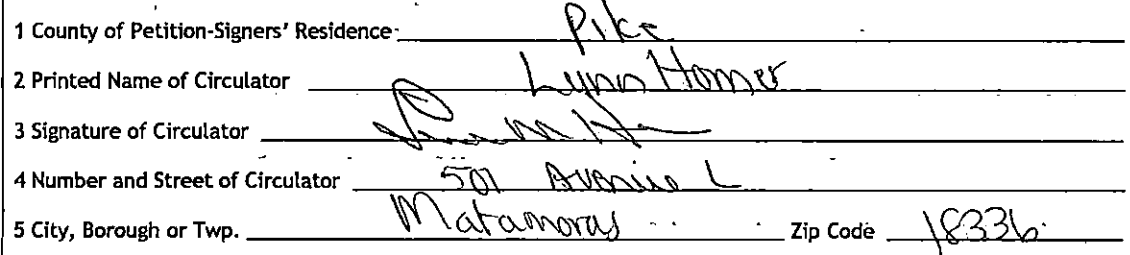 1 County of Petition-Signers' Residence Pike
2 Printed Name of Circulator Lynn Homer
3 Signature of Circulator
4 Number and Street of Circulator 507 Avenue L
5 City, Borough or Twp. Matamoras Zip Code 18336